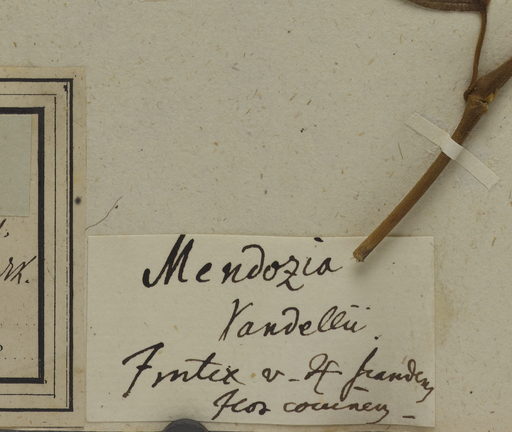 Mendozia
Vandellii.
Frutex v. H scandens
flos coccineus
rk.